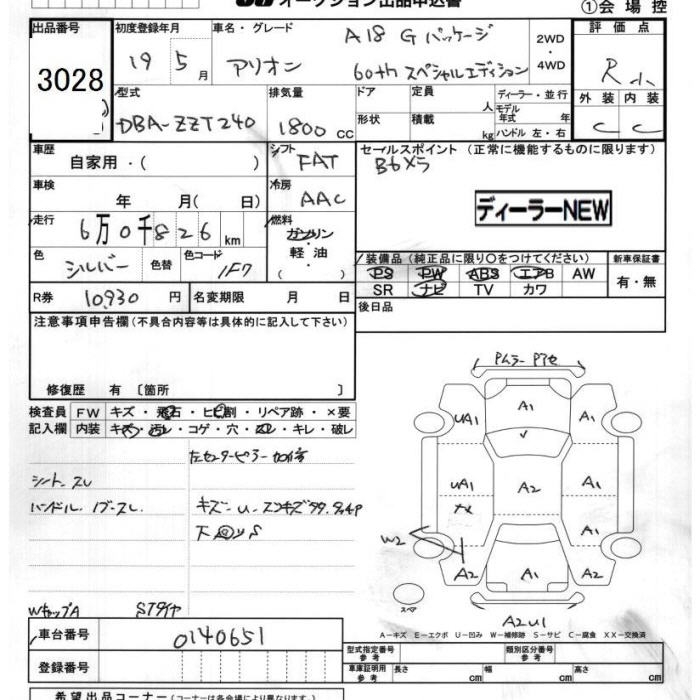 オークション出品申込書
①会場控
出品番号 3028
初度登録年月 19 5月
車名・グレード アリオン A18 Gパッケージ 60th スペシャルエディション
2WD・4WD
評価点 R小
外装 C 内装 C
型式 DBA-ZZT240
排気量 1800cc
ドア 形状
定員 人 積載 kg
ディーラー・並行
モデル年式 年
ハンドル 左・右
車歴 自家用・( )
シフト FAT
セールスポイント (正常に機能するものに限ります)
ディーラーNEW
車検 年 月( 日)
冷房 AAC
走行 6万0千826km
燃料 ガソリン・軽油 ( )
色 シルバー 色替 色コード 1F7
装備品(純正品に限り○をつけてください)
新車保証書 有・無
PS PW ABS エアB AW
SR ナビ TV カワ
R券 10,930円
名変期限 月 日
後日品
注意事項申告欄(不具合内容等は具体的に記入して下さい)
修復歴 有 〔箇所 〕
検査員記入欄
FW キズ・飛石・ヒビ割・リペア跡・×要
内装 キズ・汚レ・コゲ・穴・スレ・キレ・破レ
左センターピラー
シート スレ
ハンドル・ノブ・スレ
WキャップA
Sタイヤ
A1
UA1 A1
UA1 A2 A1
A1
W2
A2 A1 A2
スペア
A2U1
A－キズ E－エクボ U－凹み W－補修跡 S－サビ C－腐食 XX－交換済
車台番号 0140651
登録番号
型式指定番号 参考
類別区分番号 参考
車庫証明用 参考 長さ cm 幅 cm 高さ cm
希望出品コーナー(コーナーは各会場により異なります)